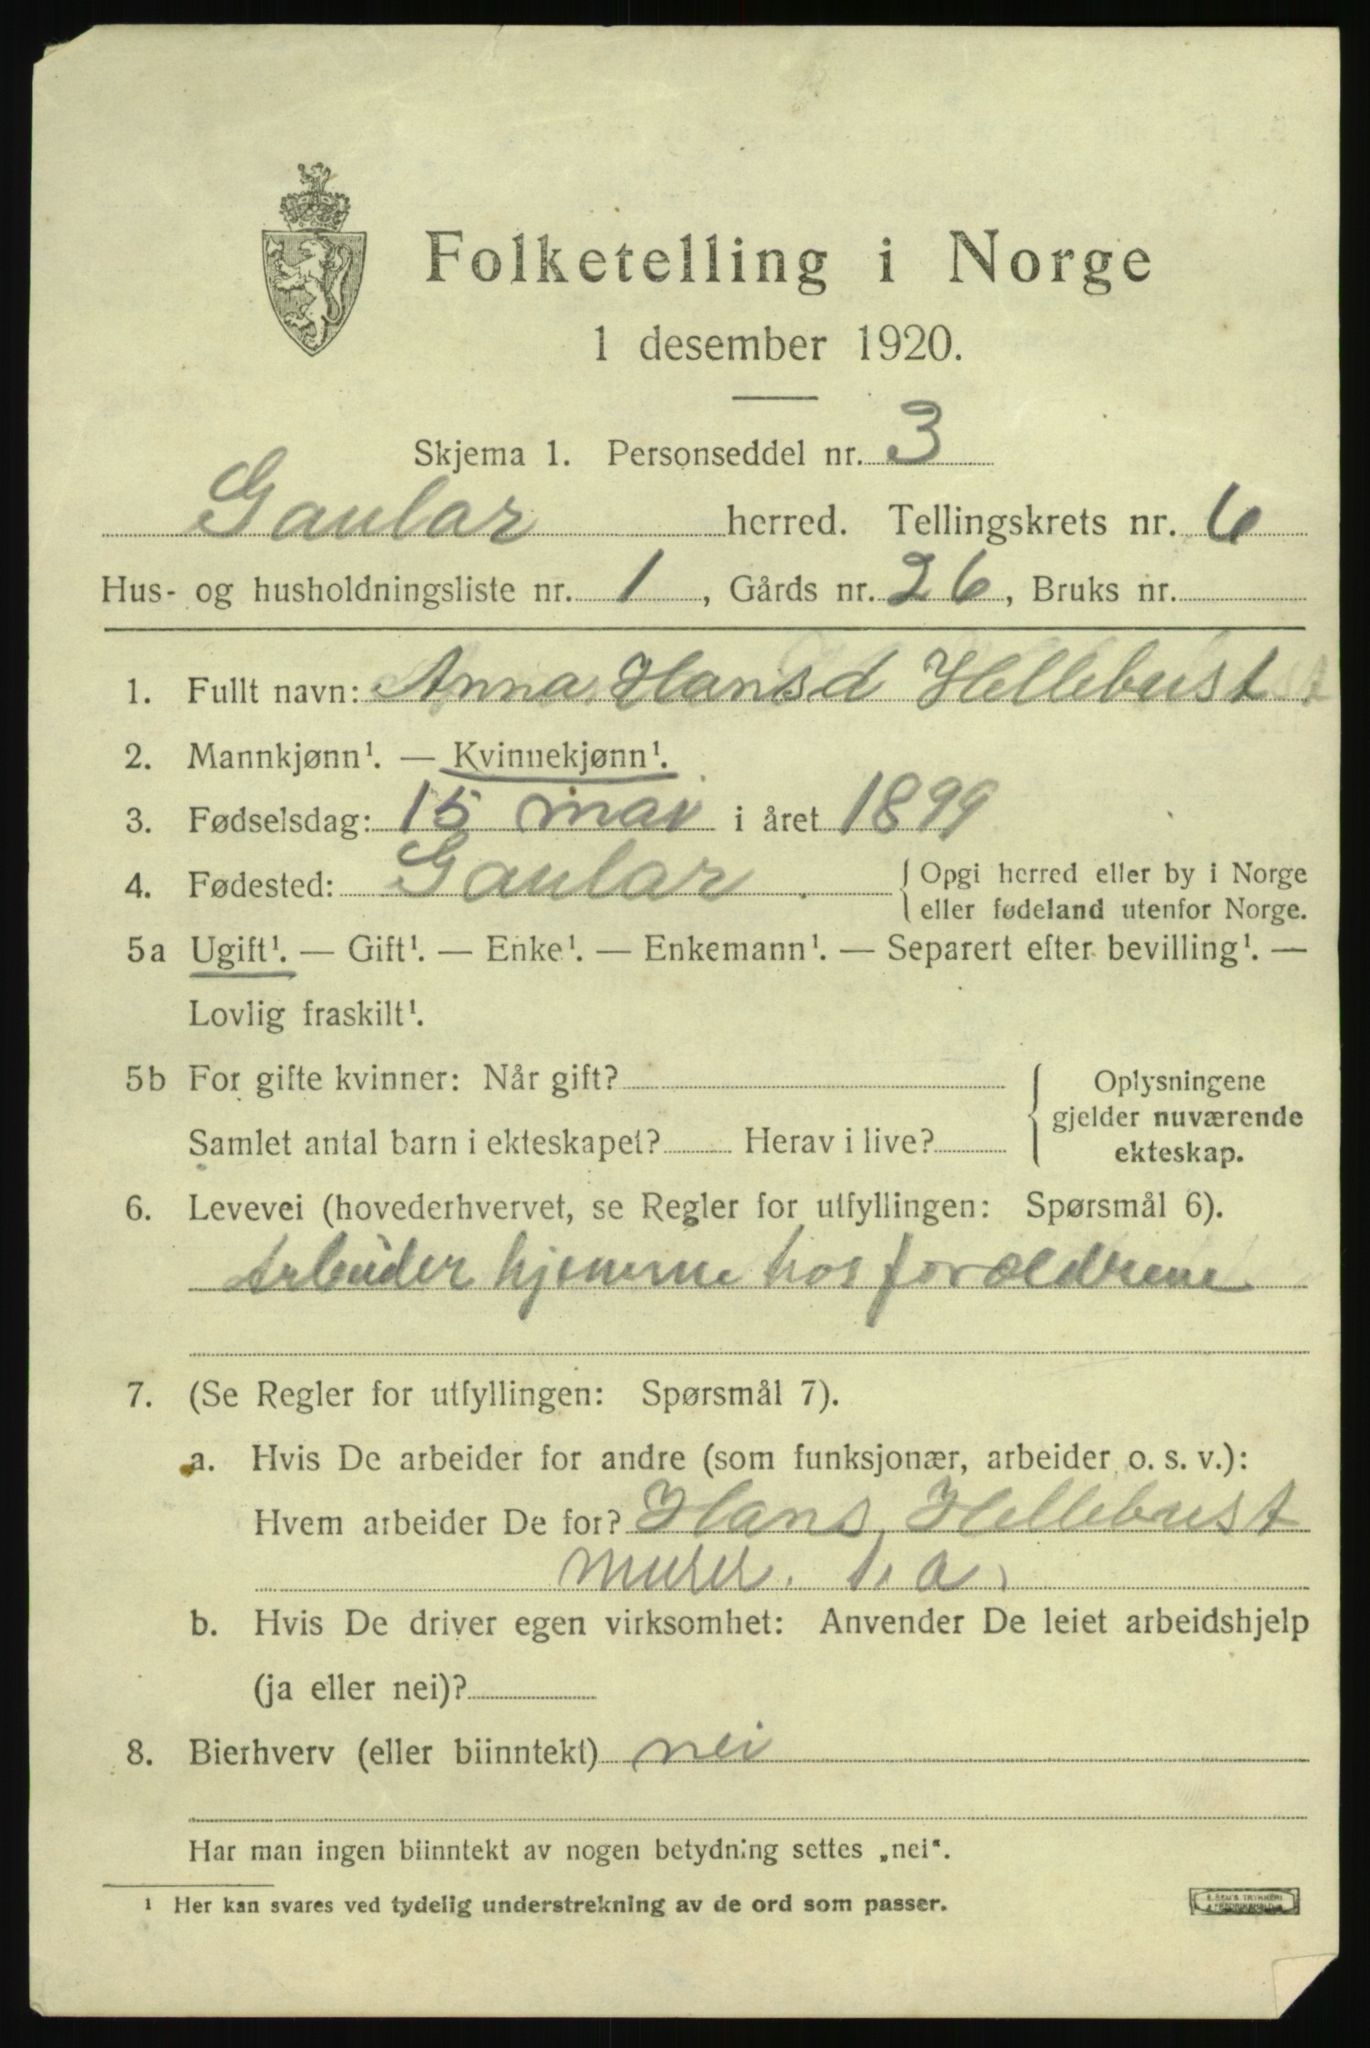 Folketelling i Norge
1 desember 1920.
Skjema 1. Personseddel nr. 3
Gaular herred. Tellingskrets nr. 6
Hus- og husholdningsliste nr. 1, Gårds nr. 26, Bruks nr.
1. Fullt navn: Anna Hansd Hellebust
2. Mannkjønn¹. — Kvinnekjønn¹.
3. Fødselsdag: 15 mai i året 1899
4. Fødested: Gaular. {Opgi herred eller by i Norge
eller fødeland utenfor Norge.
5a Ugift¹. — Gift¹. — Enke¹. — Enkemann¹. — Separert efter bevilling¹. —
Lovlig fraskilt¹.
5b For gifte kvinner: Når gift? {Oplysningene
gjelder nuværende
Samlet antal barn i ekteskapet? Herav i live?
ekteskap.
6. Levevei (hovederhvervet, se Regler for utfyllingen: Spørsmål 6).
Arbeider hjemme hos forældrene
7. (Se Regler for utfyllingen: Spørsmål 7).
a. Hvis De arbeider for andre (som funksjonær, arbeider o. s. v.):
Hvem arbeider De for? Hans Hellebust
murer. 1. a.
b. Hvis De driver egen virksomhet: Anvender De leiet arbeidshjelp
(ja eller nei)?
8. Bierhverv (eller biinntekt) nei
Har man ingen biinntekt av nogen betydning settes „nei“.
¹ Her kan svares ved tydelig understrekning av de ord som passer.